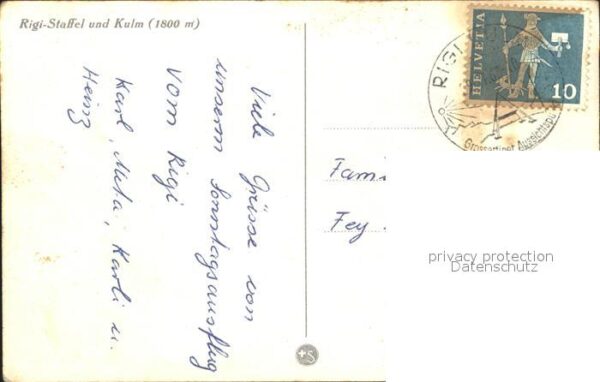 Rigi-Staffel und Kulm (1800 m)
Viele Grüsse von
unserm Sonntagsausflug
vom Rigi
Karl, Meta, Karli u.
Heinz
HELVETIA
10
RIGI
Grossartiger Aussichtspu
Fami
Fey
privacy protection
Datenschutz
+S